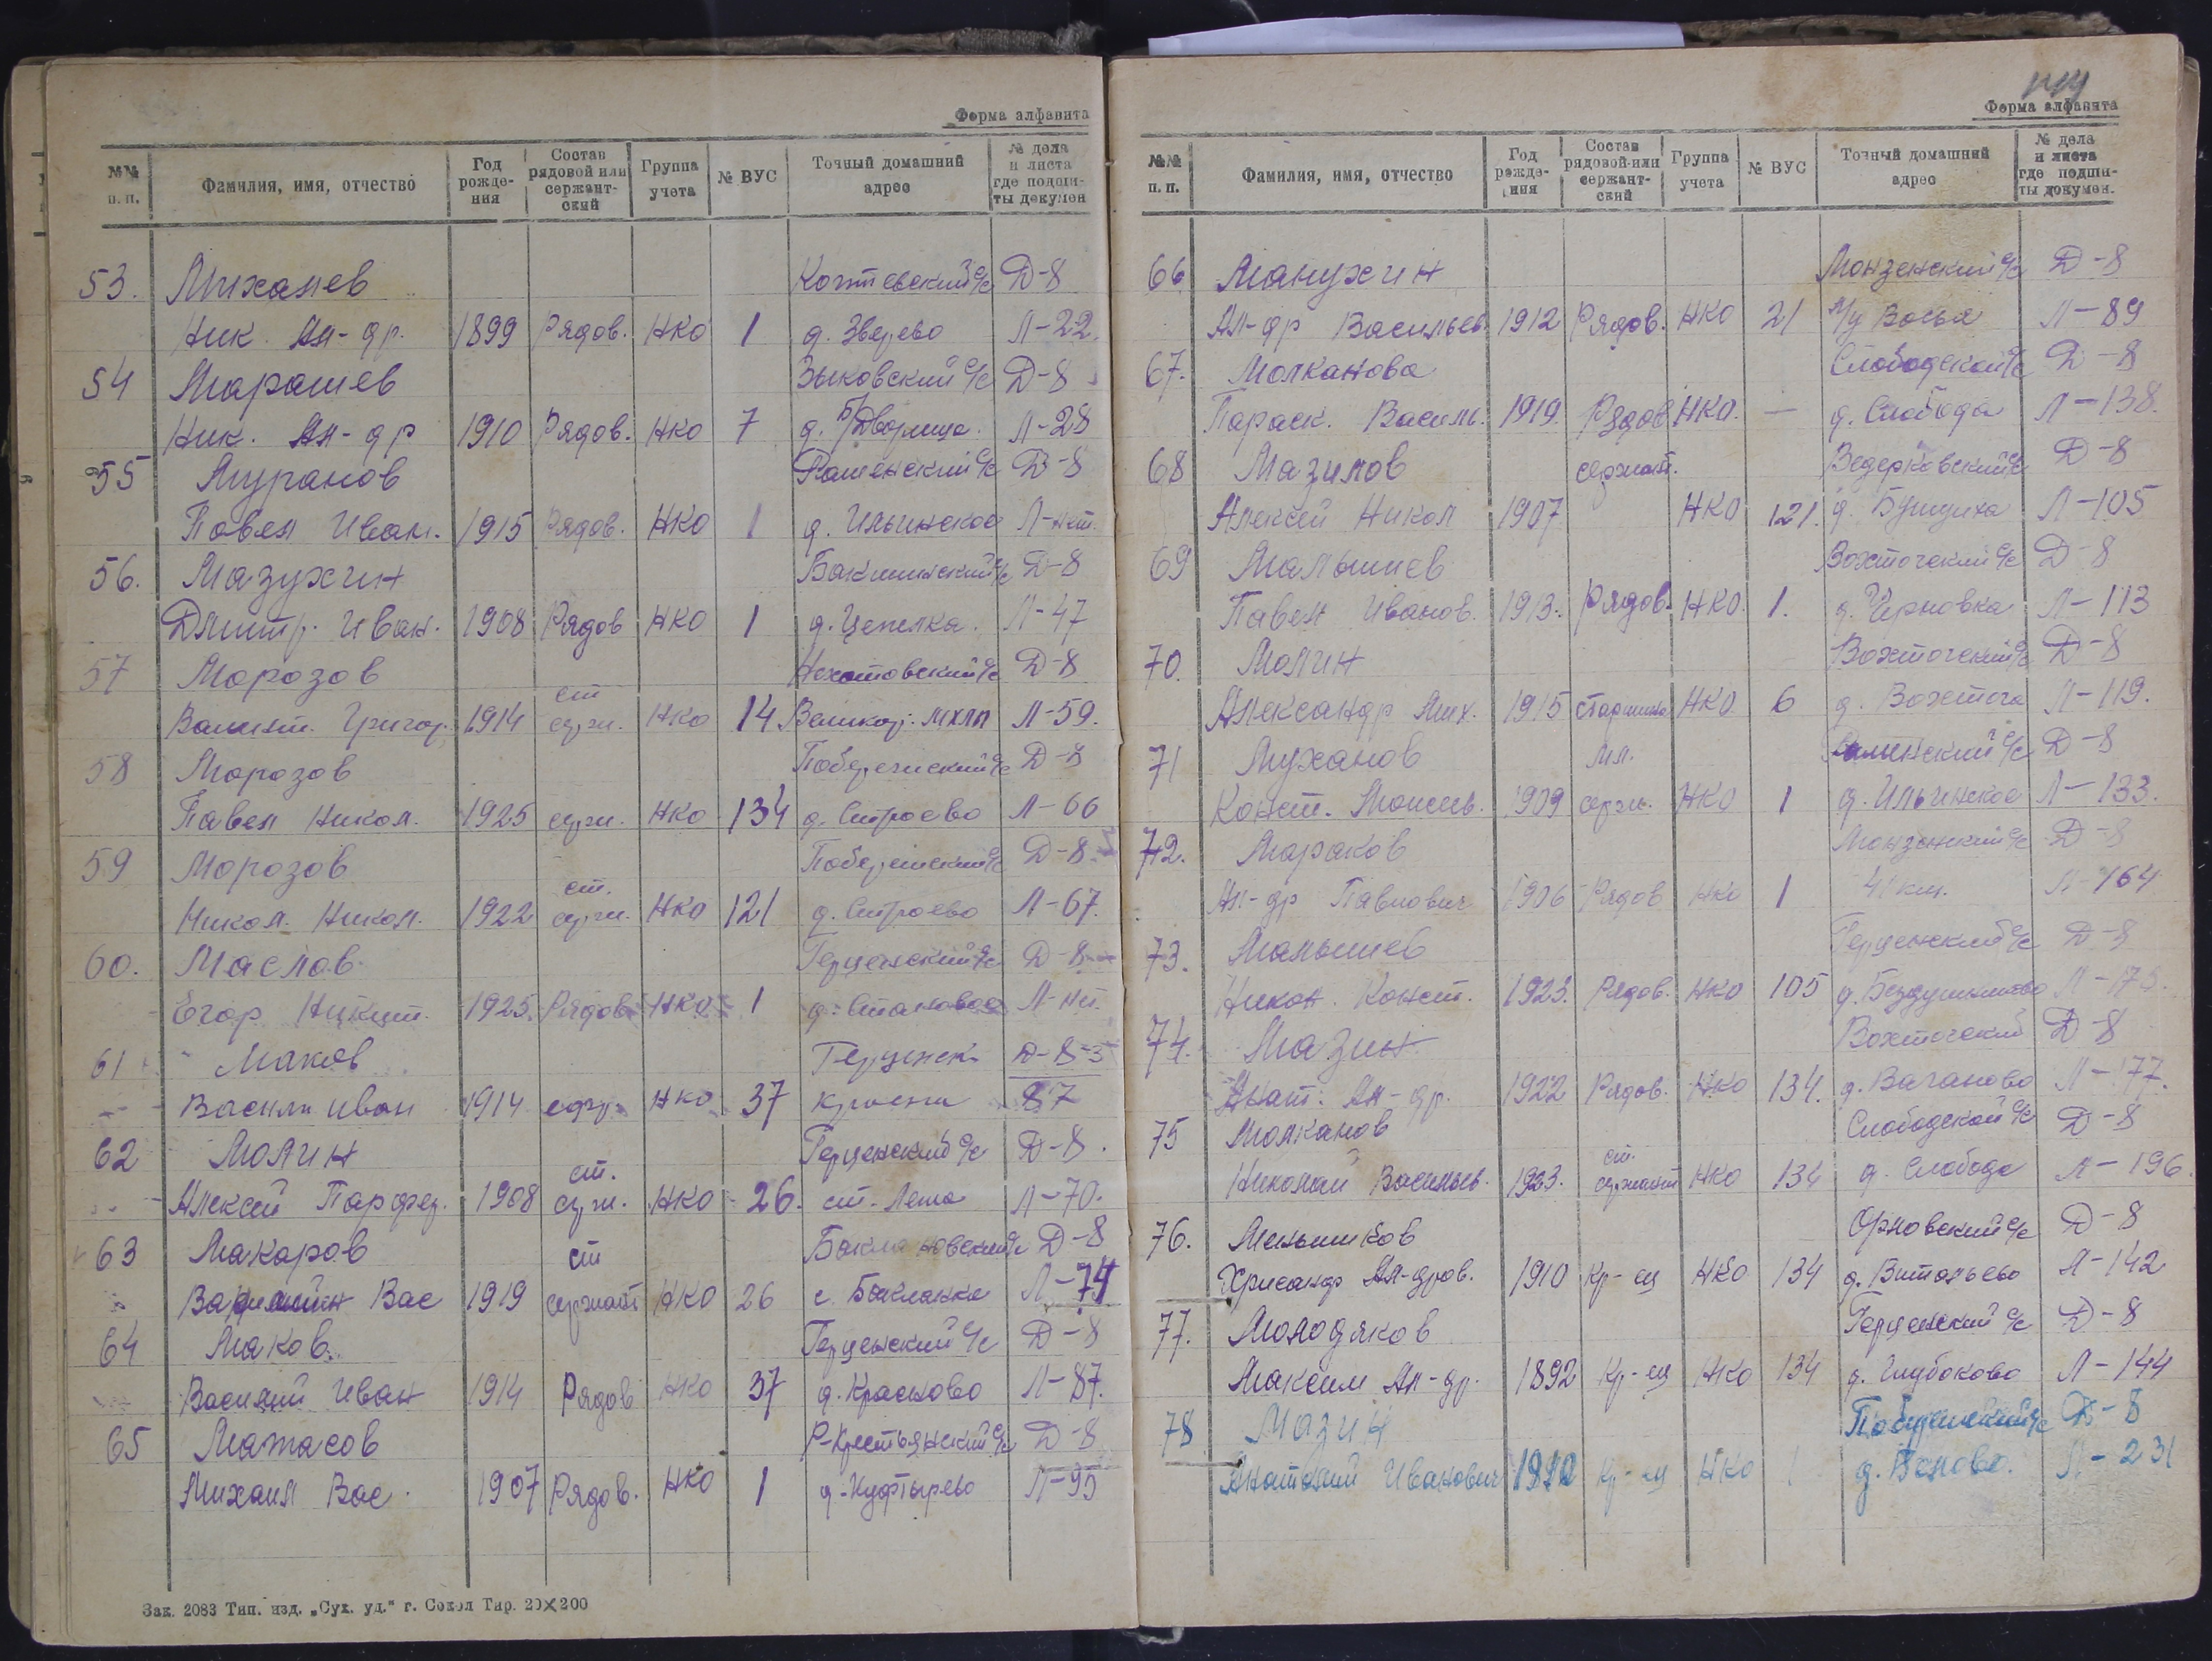 Форма алфавита
№№ п. п. Фамилия, имя, отчество Год рожде-ния Состав рядовой или сержант-ский Группа учета № ВУС Точный домашний адрес № дела и листа где подши-ты докумен
53. Михалев Коптевский с/с Д-8
Ник. Ал-др. 1899 Рядов. НКО 1 д. Зверево Л-22.
54 Марашев Зыковский с/с Д-8
Ник. Ал-др 1910 Рядов. НКО 7 д. Б/Дворища. Л-28
55 Муранов Раменский с/с Д-8
Павел Иван. 1915 Рядов. НКО 1 д. Ильинское Л-нет.
56. Мазухин с/с Д-8
Дмитр. Иван. 1908 Рядов НКО 1 д. Цепелка. Л-47
57 Морозов с/с Д-8
ст
Валент. Григор. 1914 серж. НКО 14 МХЛП Л-59.
58 Морозов с/с Д-8
Павел Никол. 1925 серж. НКО 134 д. Строево Л-66
59 Морозов с/с Д-8
ст.
Никол. Никол. 1922 серж. НКО 121 д. Строево Л-67.
60. Маслов Герценский с/с Д-8
Егор Никит. 1925 Рядов НКО 1 д. Становое Л-нет.
61 Маков Герценск Д-8
Васили Иван 1914 НКО 37 87
62 Молин Герценский с/с Д-8.
ст.
Алексей Парфен. 1908 серж. НКО 26. ст. Лежа Л-70.
63 Макаров ст Баклановский с/с Д-8
Вас 1919 сержант НКО 26 с. Бакланка Л-74
64 Маков. Герценский с/с Д-8
Василий Иван 1914 Рядов НКО 37 д. Красково Л-87.
65 Матасов Р-Крестьянский с/с Д-8
Михаил Вас. 1907 Рядов. НКО 1 д. Куфтырево Л-95
Зак. 2083 Тип. изд. „Сух. уд." г. Сокол Тир. 20×200
Форма алфавита
№№ п. п. Фамилия, имя, отчество Год рожде-ния Состав рядовой или сержант-ский Группа учета № ВУС Точный домашний адрес № дела и листа где подши-ты докумен.
66 Манухин Монзенский с/с Д-8
Ал-др Васильев. 1912 Рядов. НКО 21 Л-89
67. Молканова Слободской с/с Д-8
Параск. Василь. 1919. Рядов НКО. — д. Слобода Л-138.
68 Мазилов сержант. Ведерковский с/с Д-8
Алексей Никол 1907 НКО 121. д. Бушуиха Л-105
69 Малышев Вохтожский с/с Д-8
Павел Иванов. 1913. Рядов. НКО. 1. д. Черновка Л-113
70. Молин Вохтожский с/с Д-8
Александр Мих. 1915 старшина НКО 6 д. Вохтога Л-119.
71 Муханов мл. с/с Д-8
Конст. Моисеев. 1909 серж. НКО 1 д. Ильинское Л-133.
72. Мараков Монзенский с/с Д-8
Ал-др Павлович 1906 Рядов НКО 1 41 км. Л-164
73. Малышев Герценский с/с Д-8
Никол. Конст. 1923. Рядов. НКО 105 Л-175.
74. Мазин Вохтожский Д-8
Анат. Ал-др. 1922 Рядов. НКО 134. д. Ваганово Л-177.
75 Молканов Слободской с/с Д-8
ст.
Николай Васильев. 1923. сержант НКО 134 д. Слобода Л-196.
76. Меньшиков с/с Д-8
Хрисанф Ал-дров. 1910 Кр-ец НКО 134 д. Витальево Л-142
77. Молодяков Герценский с/с Д-8
Максим Ал-др. 1892 Кр-ец НКО 134 д. Глубоково Л-144
78 Мазин с/с Д-8
Анатолий Иванович Кр-ец НКО Л-231